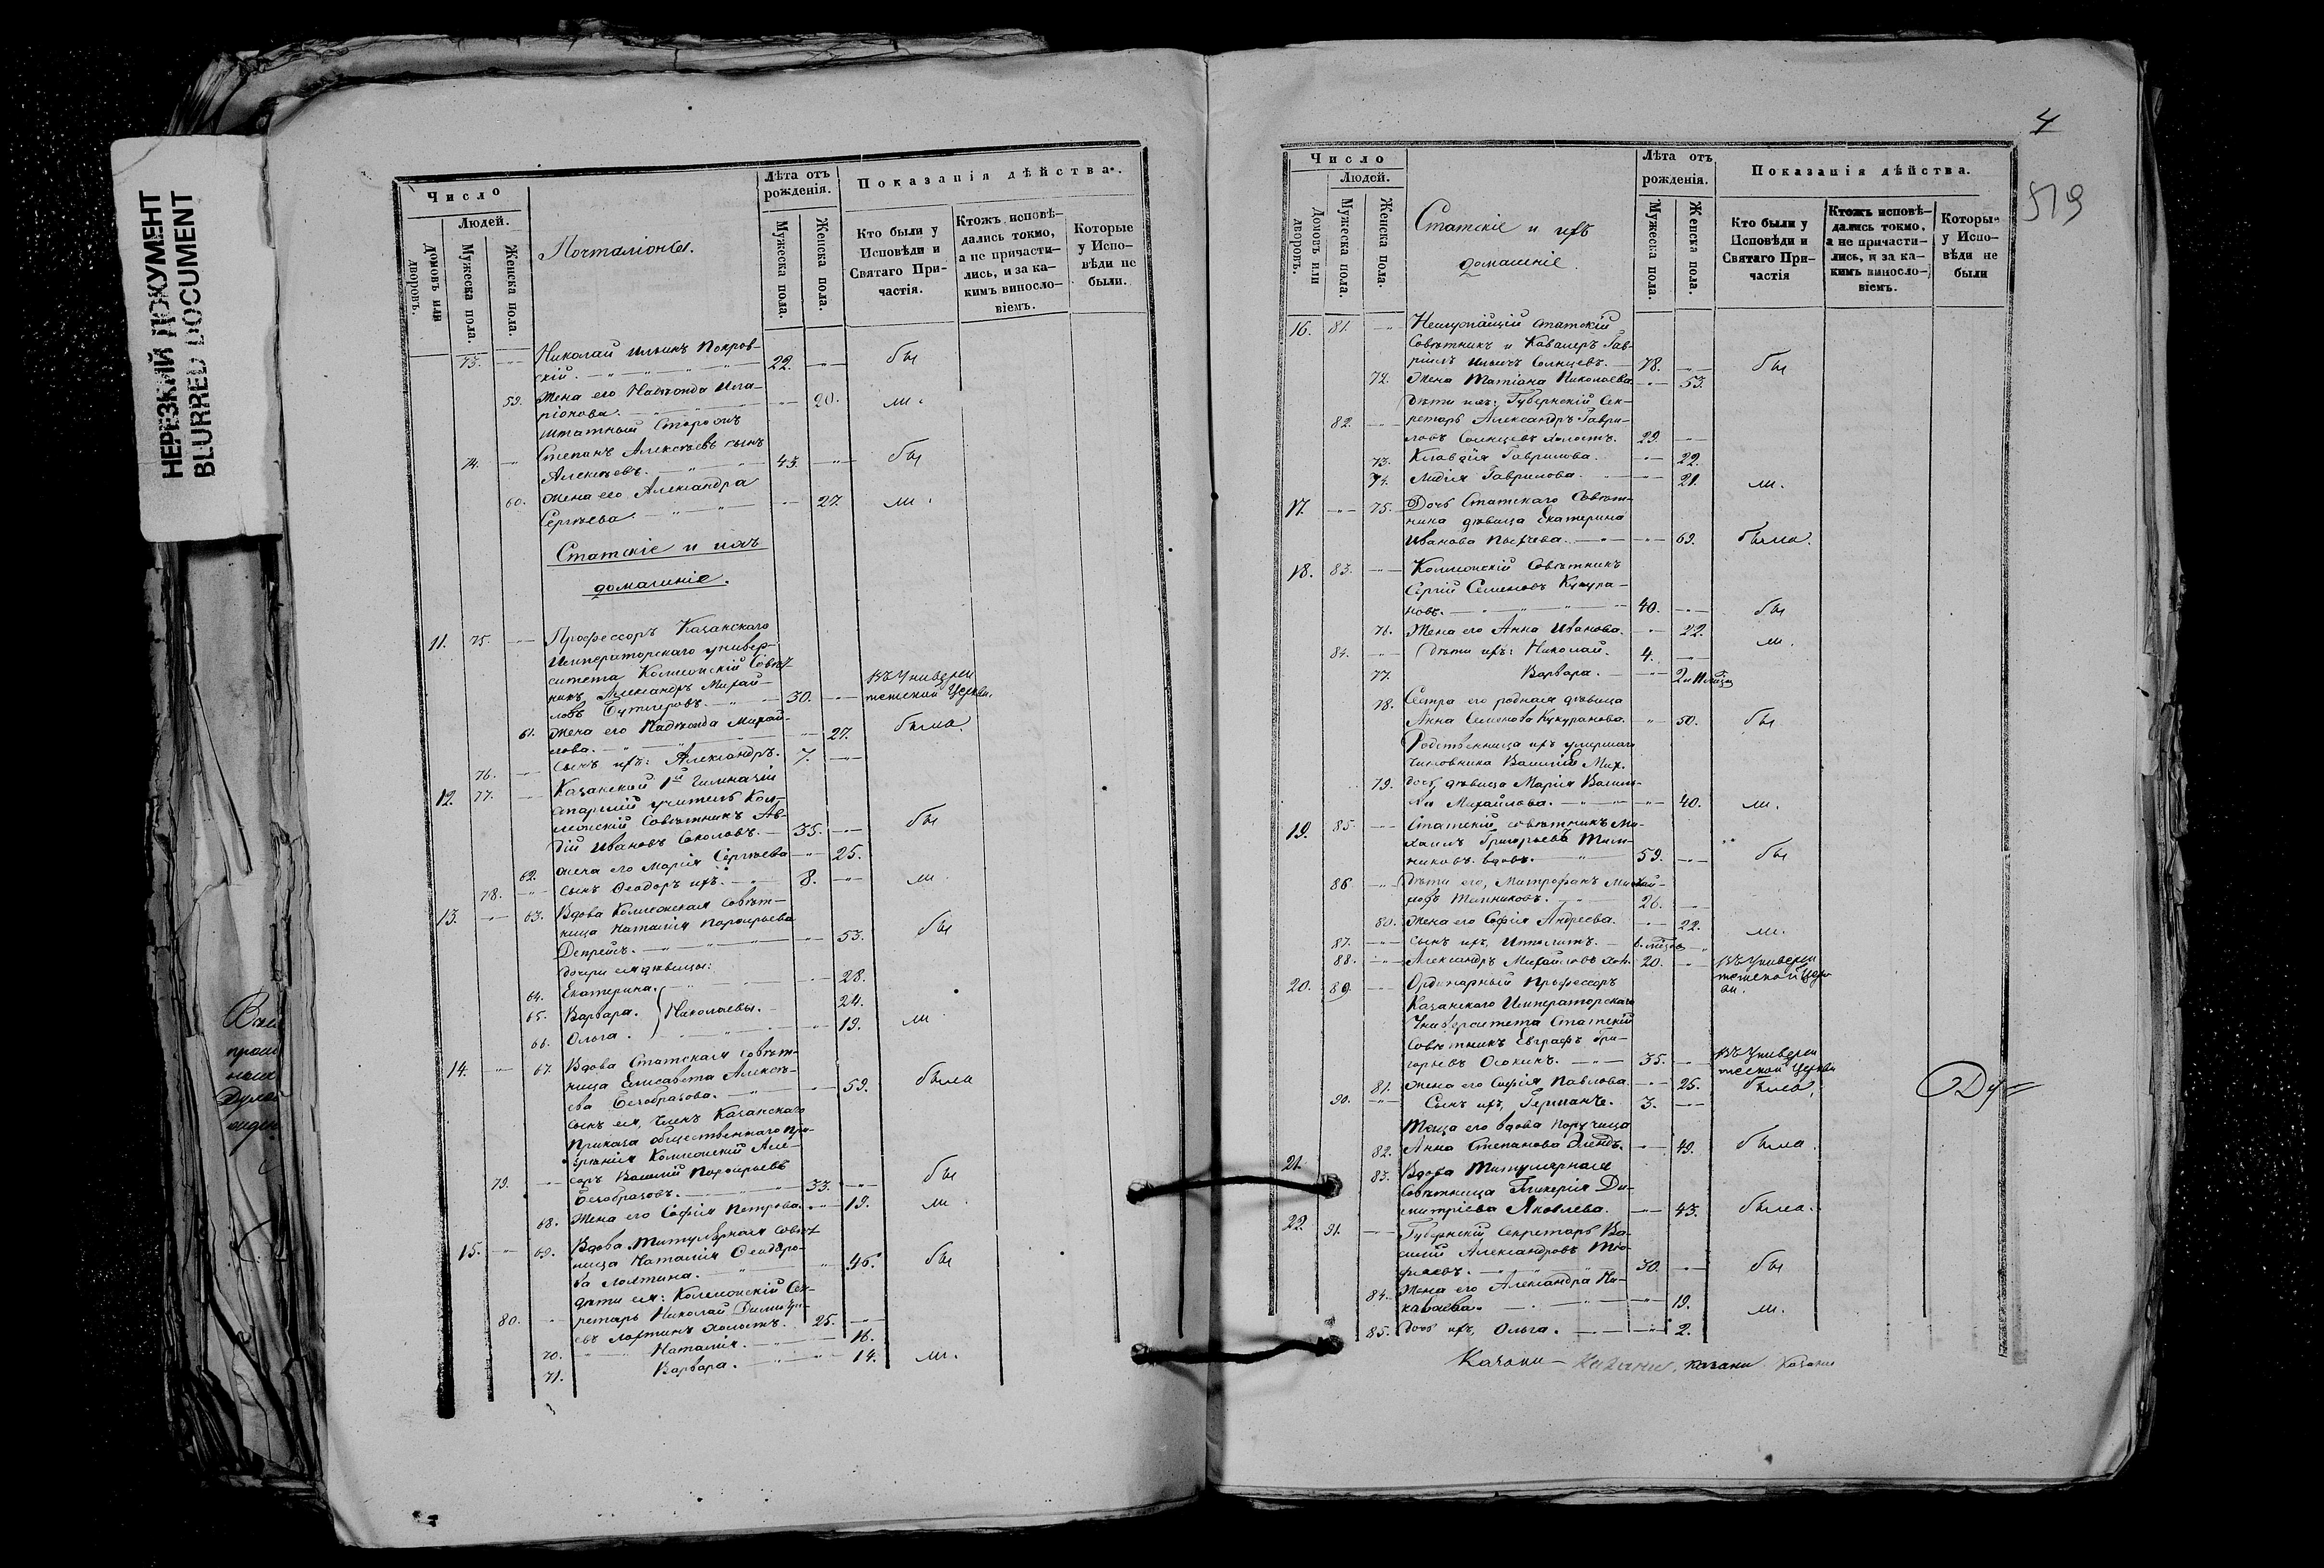 НЕРЕЗКИЙ ДОКУМЕНТ
BLURRED DOCUMENT
Число
Людей.
Домовъ или дворовъ.
Мужеска пола.
Женска пола.
Почталіоны.
Лѣта отъ рожденія.
Мужеска пола.
Женска пола.
Показанія дѣйства.
Кто были у Исповѣди и Святаго Причастія.
Ктожъ исповѣдались токмо, а не причастились, и за какимъ винословіемъ.
Которые у Исповѣди не были.
73. Николай Ильинъ Покров-
скій. 22. бы
59. Жена его Надежда Ила-
ріонова. 20. ли.
Штатный Сторожъ
74. Степанъ Алексѣевъ сынъ
Алексѣевъ. 43. бы
60. Жена его Александра
Сергѣева. 27. ли.
Статскіе и ихъ
домашніе.
11. 75. Профессоръ Казанскаго
Императорскаго универ-
ситета Коллежскій Совѣт-
никъ Александръ Михай-
ловъ Бутлеровъ. 30. въ Универси
тетской Церкви.
61. Жена его Надежда Михай-
лова. 27. была.
76. Сынъ ихъ: Александръ. 7.
12. 77. Казанской 1й Гимназіи
Старшій учитель Кол-
лежскій Совѣтникъ Ав-
дій Ивановъ Соколовъ. 35. бы
62. Жена его Марія Сергѣева 25.
78. Сынъ Ѳеодоръ ихъ. 8. ли
13. 63. Вдова Коллежская Совѣт-
ница Наталія Порфирьева
Депрейсъ. 53. бы
Дочери ея дѣвицы:
64. Екатерина. 28.
65. Варвара. Николаевы. 24.
66. Ольга. 19. ли
14. 67. Вдова Статская Совѣт-
ница Елисавета Алексѣ-
ева Безобразова. 59. была
Сынъ ея, Членъ Казанскаго
Приказа общественнаго при-
зрѣнія Коллежскій Асес-
79. соръ Василій Порфирьевъ
Безобразовъ. 33. бы
68. Жена его Софія Петрова. 19. ли
15. 69. Вдова Титулярная Совѣт-
ница Наталія Ѳеодоро-
ва Лаптина. 46. бы
дѣти ея: Коллежскій Сек-
80. ретарь Николай Димитрі-
евъ Лаптинъ холостъ. 25.
70. Наталія. 16.
71. Варвара. 14. ли.
4
519
Число
Людей.
Домовъ или дворовъ.
Мужеска пола.
Женска пола.
Статскіе и ихъ
домашніе.
Лѣта отъ рожденія.
Мужеска пола.
Женска пола.
Показанія дѣйства.
Кто были у Исповѣди и Святаго Причастія
Ктожъ исповѣдались токмо, а не причастились, и за какимъ винословіемъ.
Которые у Исповѣди не были
16. 81. Статскій
Совѣтникъ и Кавалеръ Гав-
ріилъ Ильичъ Солнцевъ. 78. бы
72. Жена Татіана Николаева 53.
Дѣти ихъ: Губернскій Сек-
82. ретарь Александръ Гаври-
ловъ Солнцевъ холостъ. 29.
73. Клавдія Гаврилова. 22.
74. Лидія Гаврилова. 21. ли.
17. 75. Дочь Статскаго Совѣт-
ника дѣвица Екатерина
Иванова 69. была.
18. 83. Коллежскій Совѣтникъ
Сергій Семеновъ Кукура-
новъ. 40. бы
76. Жена его Анна Иванова. 22. ли.
84. Дѣти ихъ: Николай. 4.
77. Варвара. 2
78. Сестра его родная дѣвица
Анна Семенова Кукуранова. 50. бы
Родственница ихъ умершаго
Чиновника Василія Мих.
79. дочь, дѣвица Марія Василь-
ева Михайлова. 40. ли.
19. 85. Статскій совѣтникъ Ми-
хаилъ Григорьевъ
вдовъ. 59. бы
86. Дѣти его, Митрофанъ Михай-
ловъ 26.
80. Жена его Софія Андреева. 22. ли.
87. Сынъ ихъ, Ипполитъ. 6. мѣсяц.
88. Александръ Михайловъ хол. 20. въ Универси
тетской Церк
ви.
20. 89. Ординарный Профессоръ
Казанскаго Императорскаго
Университета Статскій
Совѣтникъ Евграфъ Гри-
горьевъ Осокинъ. 35. въ Универси
тетской Церкви
81. Жена его Софія Павлова. 25. была.
90. Сынъ ихъ, 3.
Теща его вдова
82. Анна Степанова 49. была.
21. 83. Вдова Титулярная
Совѣтница Гликерія Ди-
митріева Яковлева. 43. была.
22. 91. Губернскій Секретарь Ва-
силій Александровъ Тю-
фяевъ. 30. бы
84. Жена его Александра Ни-
колаева. 19. ли.
85. Дочь ихъ, Ольга. 2.
Казани Казани Казани Казани